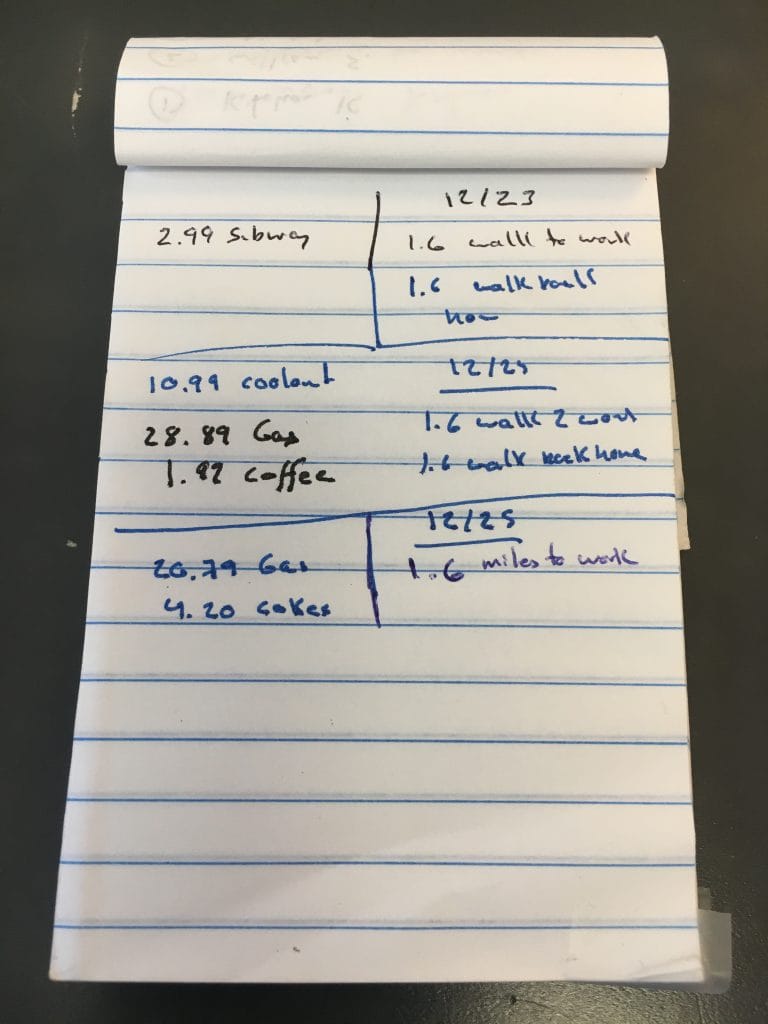 12/23
2.99 Subway
1.6 walk to work
1.6 walk back
hom
12/24
10.99 coolant
1.6 walk 2 work
28.89 Gas
1.6 walk back home
1.92 coffee
12/25
1.6 miles to work
20.79 Gas
4.20 cokes